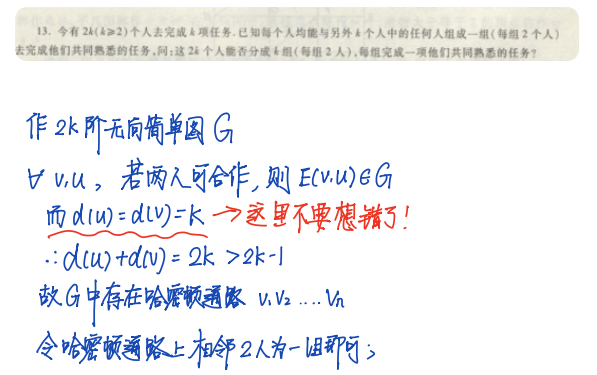 13. 今有 2k(k≥2)个人去完成 k 项任务.已知每个人均能与另外 k 个人中的任何人组成一组(每组 2 个人)
去完成他们共同熟悉的任务,问:这 2k 个人能否分成 k 组(每组 2 人),每组完成一项他们共同熟悉的任务?
作 2k 阶无向简单图 G
∀ v,u, 若两人可合作, 则 E(v,u)∈G
而 d(u)=d(v)=k → 这里不要想错了!
∴ d(u)+d(v)=2k >2k-1
故 G 中存在哈密顿通路 v₁v₂....vₙ
令哈密顿通路上相邻2人为一组即可;